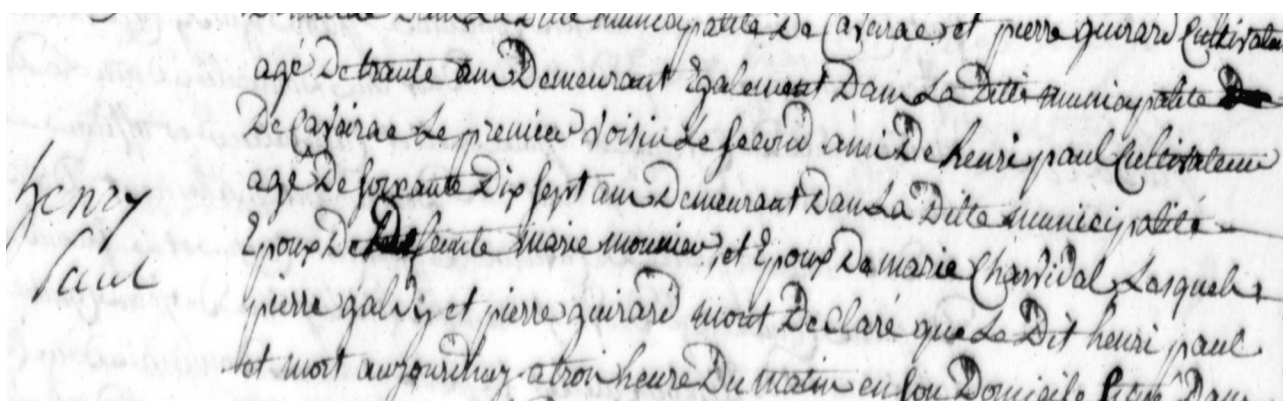 municipalité De Caveirac et pierre guirard Cultivateur
agé De trante ans Demeurant Egalement Dans La Ditte municipalité
De Caveirac Le premier voisin Le second ami De henri paul Cultivateur
henry
agé De soixante Dix sept ans Demeurant Dans La Ditte municipalité
Epoux De feüe marie mounier, et Epoux De marie Charvidal Lesquels
paul
pierre galdy et pierre guirard mont Declaré que Le Dit henri paul
est mort aujourdhuy a trois heure Du matin en son Domicile situé Dans